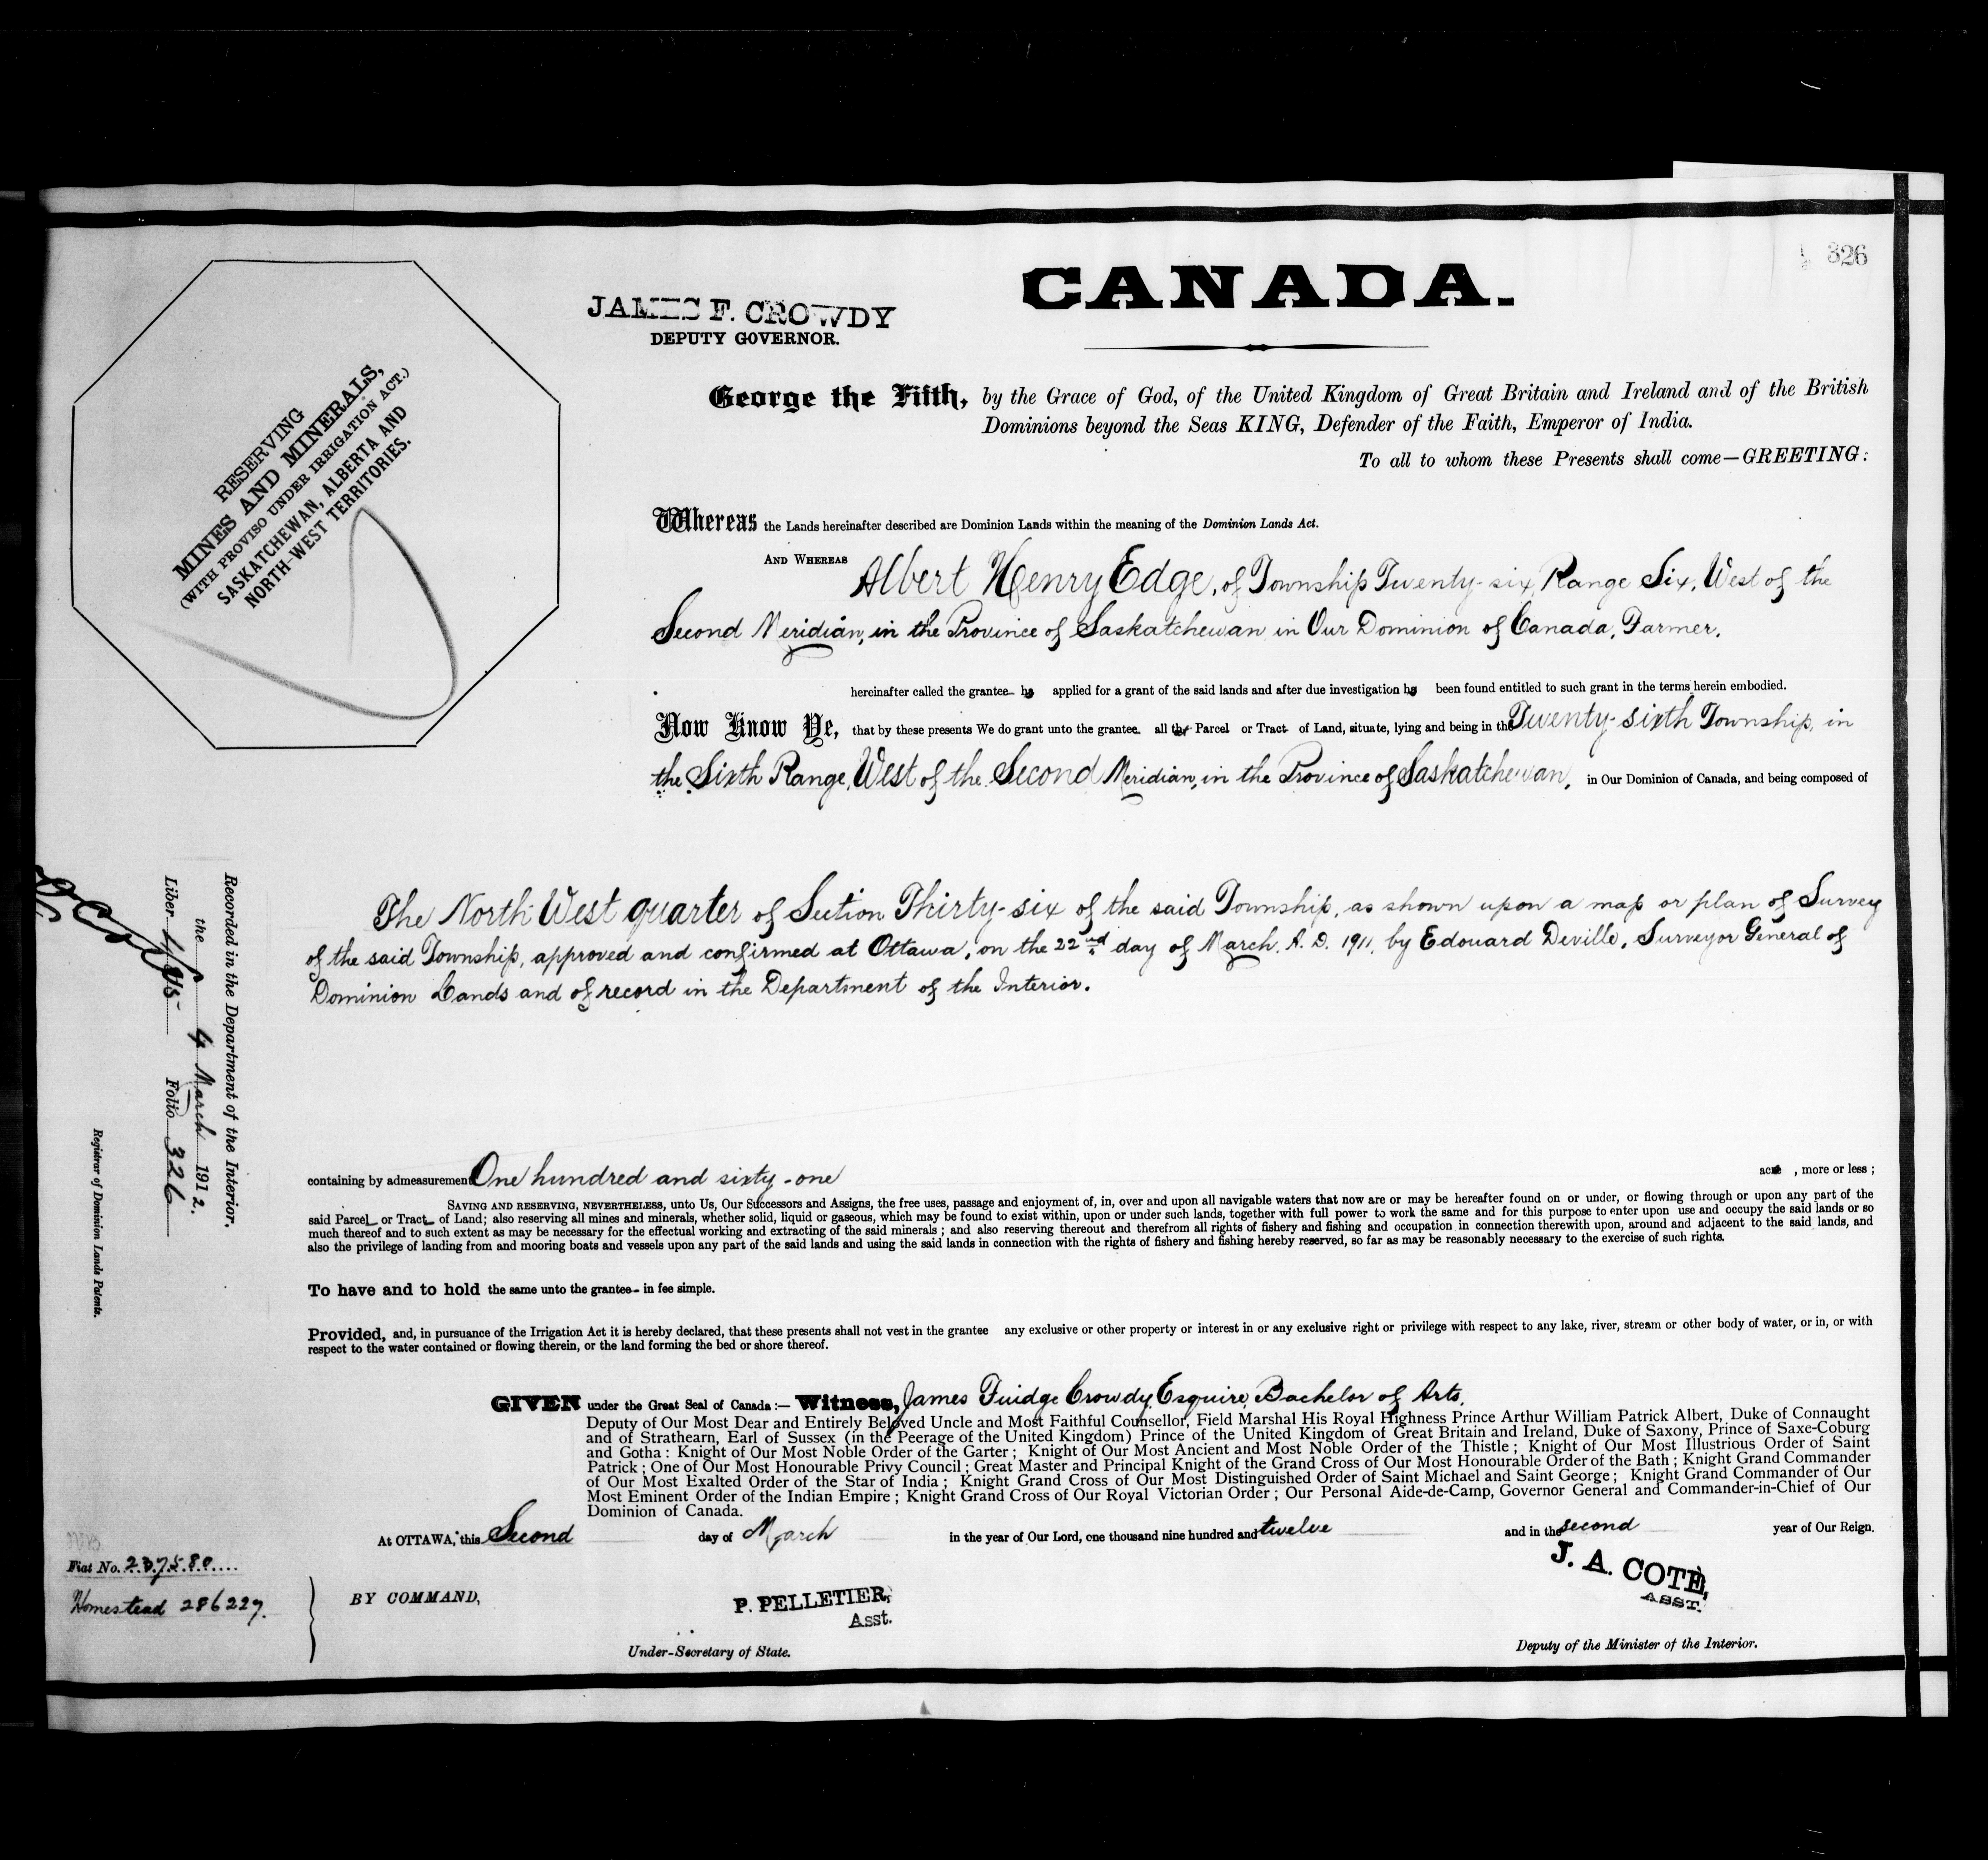 326
CANADA.
JAMES F. CROWDY
DEPUTY GOVERNOR.
RESERVING
MINES AND MINERALS,
(WITH PROVISO UNDER IRRIGATION ACT.)
SASKATCHEWAN, ALBERTA AND
NORTH-WEST TERRITORIES.
George the Fifth, by the Grace of God, of the United Kingdom of Great Britain and Ireland and of the British
Dominions beyond the Seas KING, Defender of the Faith, Emperor of India.
To all to whom these Presents shall come—GREETING:
Whereas the Lands hereinafter described are Dominion Lands within the meaning of the Dominion Lands Act.
AND WHEREAS Albert Henry Edge, of Township Twenty-six, Range Six, West of the
Second Meridian, in the Province of Saskatchewan in Our Dominion of Canada, Farmer.
hereinafter called the grantee has applied for a grant of the said lands and after due investigation has been found entitled to such grant in the terms herein embodied.
Now Know Ye, that by these presents We do grant unto the grantee all that Parcel or Tract of Land, situate, lying and being in the Twenty-sixth Township, in
the Sixth Range, West of the Second Meridian, in the Province of Saskatchewan, in Our Dominion of Canada, and being composed of
The North West quarter of Section Thirty-six of the said Township, as shown upon a map or plan of Survey
of the said Township, approved and confirmed at Ottawa, on the 22nd day of March, A. D. 1911, by Edouard Deville, Surveyor General of
Dominion Lands and of record in the Department of the Interior.
containing by admeasurement One hundred and sixty-one acre , more or less ;
SAVING AND RESERVING, NEVERTHELESS, unto Us, Our Successors and Assigns, the free uses, passage and enjoyment of, in, over and upon all navigable waters that now are or may be hereafter found on or under, or flowing through or upon any part of the
said Parcel or Tract of Land; also reserving all mines and minerals, whether solid, liquid or gaseous, which may be found to exist within, upon or under such lands, together with full power to work the same and for this purpose to enter upon use and occupy the said lands or so
much thereof and to such extent as may be necessary for the effectual working and extracting of the said minerals ; and also reserving thereout and therefrom all rights of fishery and fishing and occupation in connection therewith upon, around and adjacent to the said lands, and
also the privilege of landing from and mooring boats and vessels upon any part of the said lands and using the said lands in connection with the rights of fishery and fishing hereby reserved, so far as may be reasonably necessary to the exercise of such rights.
To have and to hold the same unto the grantee in fee simple.
Provided, and, in pursuance of the Irrigation Act it is hereby declared, that these presents shall not vest in the grantee any exclusive or other property or interest in or any exclusive right or privilege with respect to any lake, river, stream or other body of water, or in, or with
respect to the water contained or flowing therein, or the land forming the bed or shore thereof.
GIVEN under the Great Seal of Canada :— Witness, James Fuidge Crowdy, Esquire, Bachelor of Arts,
Deputy of Our Most Dear and Entirely Beloved Uncle and Most Faithful Counsellor, Field Marshal His Royal Highness Prince Arthur William Patrick Albert, Duke of Connaught
and of Strathearn, Earl of Sussex (in the Peerage of the United Kingdom) Prince of the United Kingdom of Great Britain and Ireland, Duke of Saxony, Prince of Saxe-Coburg
and Gotha : Knight of Our Most Noble Order of the Garter ; Knight of Our Most Ancient and Most Noble Order of the Thistle ; Knight of Our Most Illustrious Order of Saint
Patrick ; One of Our Most Honourable Privy Council ; Great Master and Principal Knight of the Grand Cross of Our Most Honourable Order of the Bath ; Knight Grand Commander
of Our Most Exalted Order of the Star of India ; Knight Grand Cross of Our Most Distinguished Order of Saint Michael and Saint George ; Knight Grand Commander of Our
Most Eminent Order of the Indian Empire ; Knight Grand Cross of Our Royal Victorian Order ; Our Personal Aide-de-Camp, Governor General and Commander-in-Chief of Our
Dominion of Canada.
At OTTAWA, this Second day of March in the year of Our Lord, one thousand nine hundred and twelve and in the second year of Our Reign.
BY COMMAND,
P. PELLETIER,
Asst.
Under-Secretary of State.
J. A. COTE,
ASST.
Deputy of the Minister of the Interior.
Recorded in the Department of the Interior.
the 4 March 1912.
Liber Folio 326
Registrar of Dominion Lands Patents.
Fiat No. 237580
Homestead 286227.